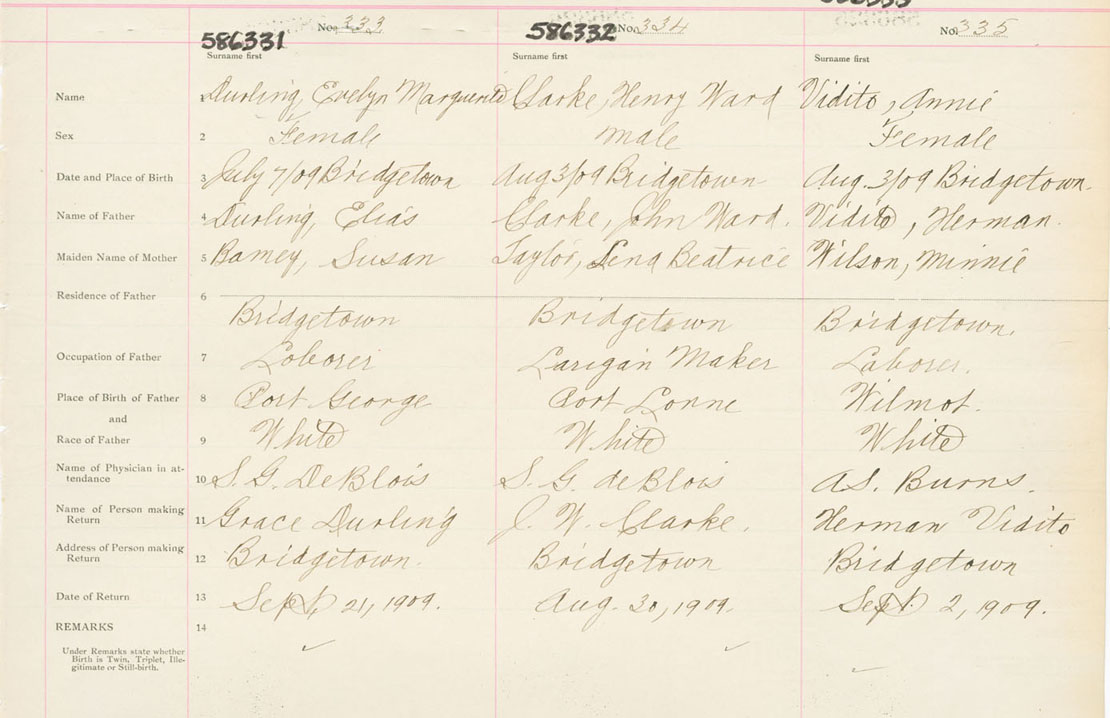 586335
586331 No. 333 586332 No. 334 No. 335
Surname first Surname first Surname first
Name 1 Durling, Evelyn Marguerite Clarke, Henry Ward Vidito, Annie
Sex 2 Female male Female
Date and Place of Birth 3 July 7/09 Bridgetown Aug 3/09 Bridgetown Aug. 3/09 Bridgetown.
Name of Father 4 Durling, Elias Clarke, John Ward. Vidito, Herman.
Maiden Name of Mother 5 Bamey, Susan Taylor, Lena Beatrice Wilson, Minnie
Residence of Father 6
Bridgetown Bridgetown Bridgetown.
Occupation of Father 7 Loborer Larigan Maker Laborer.
Place of Birth of Father 8 Port George Port Lorne Wilmot.
and
Race of Father 9 White White White
Name of Physician in at-
tendance 10 S. G. DeBlois S. G. deBlois A S. Burns.
Name of Person making
Return 11 Grace Durling J. W. Clarke. Herman Vidito
Address of Person making
Return 12 Bridgetown. Bridgetown Bridgetown
Date of Return 13 Sept, 21, 1909. Aug. 30, 1909. Sept. 2, 1909.
REMARKS 14
Under Remarks state whether
Birth is Twin, Triplet, Ille-
gitimate or Still-birth.